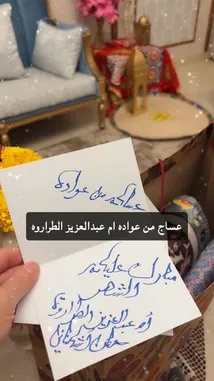 عساكم من عواده
عساج من عواده ام عبدالعزيز الطراروه
مبارك عليكم
الشهر
أم عبدالعزيز الطراروة